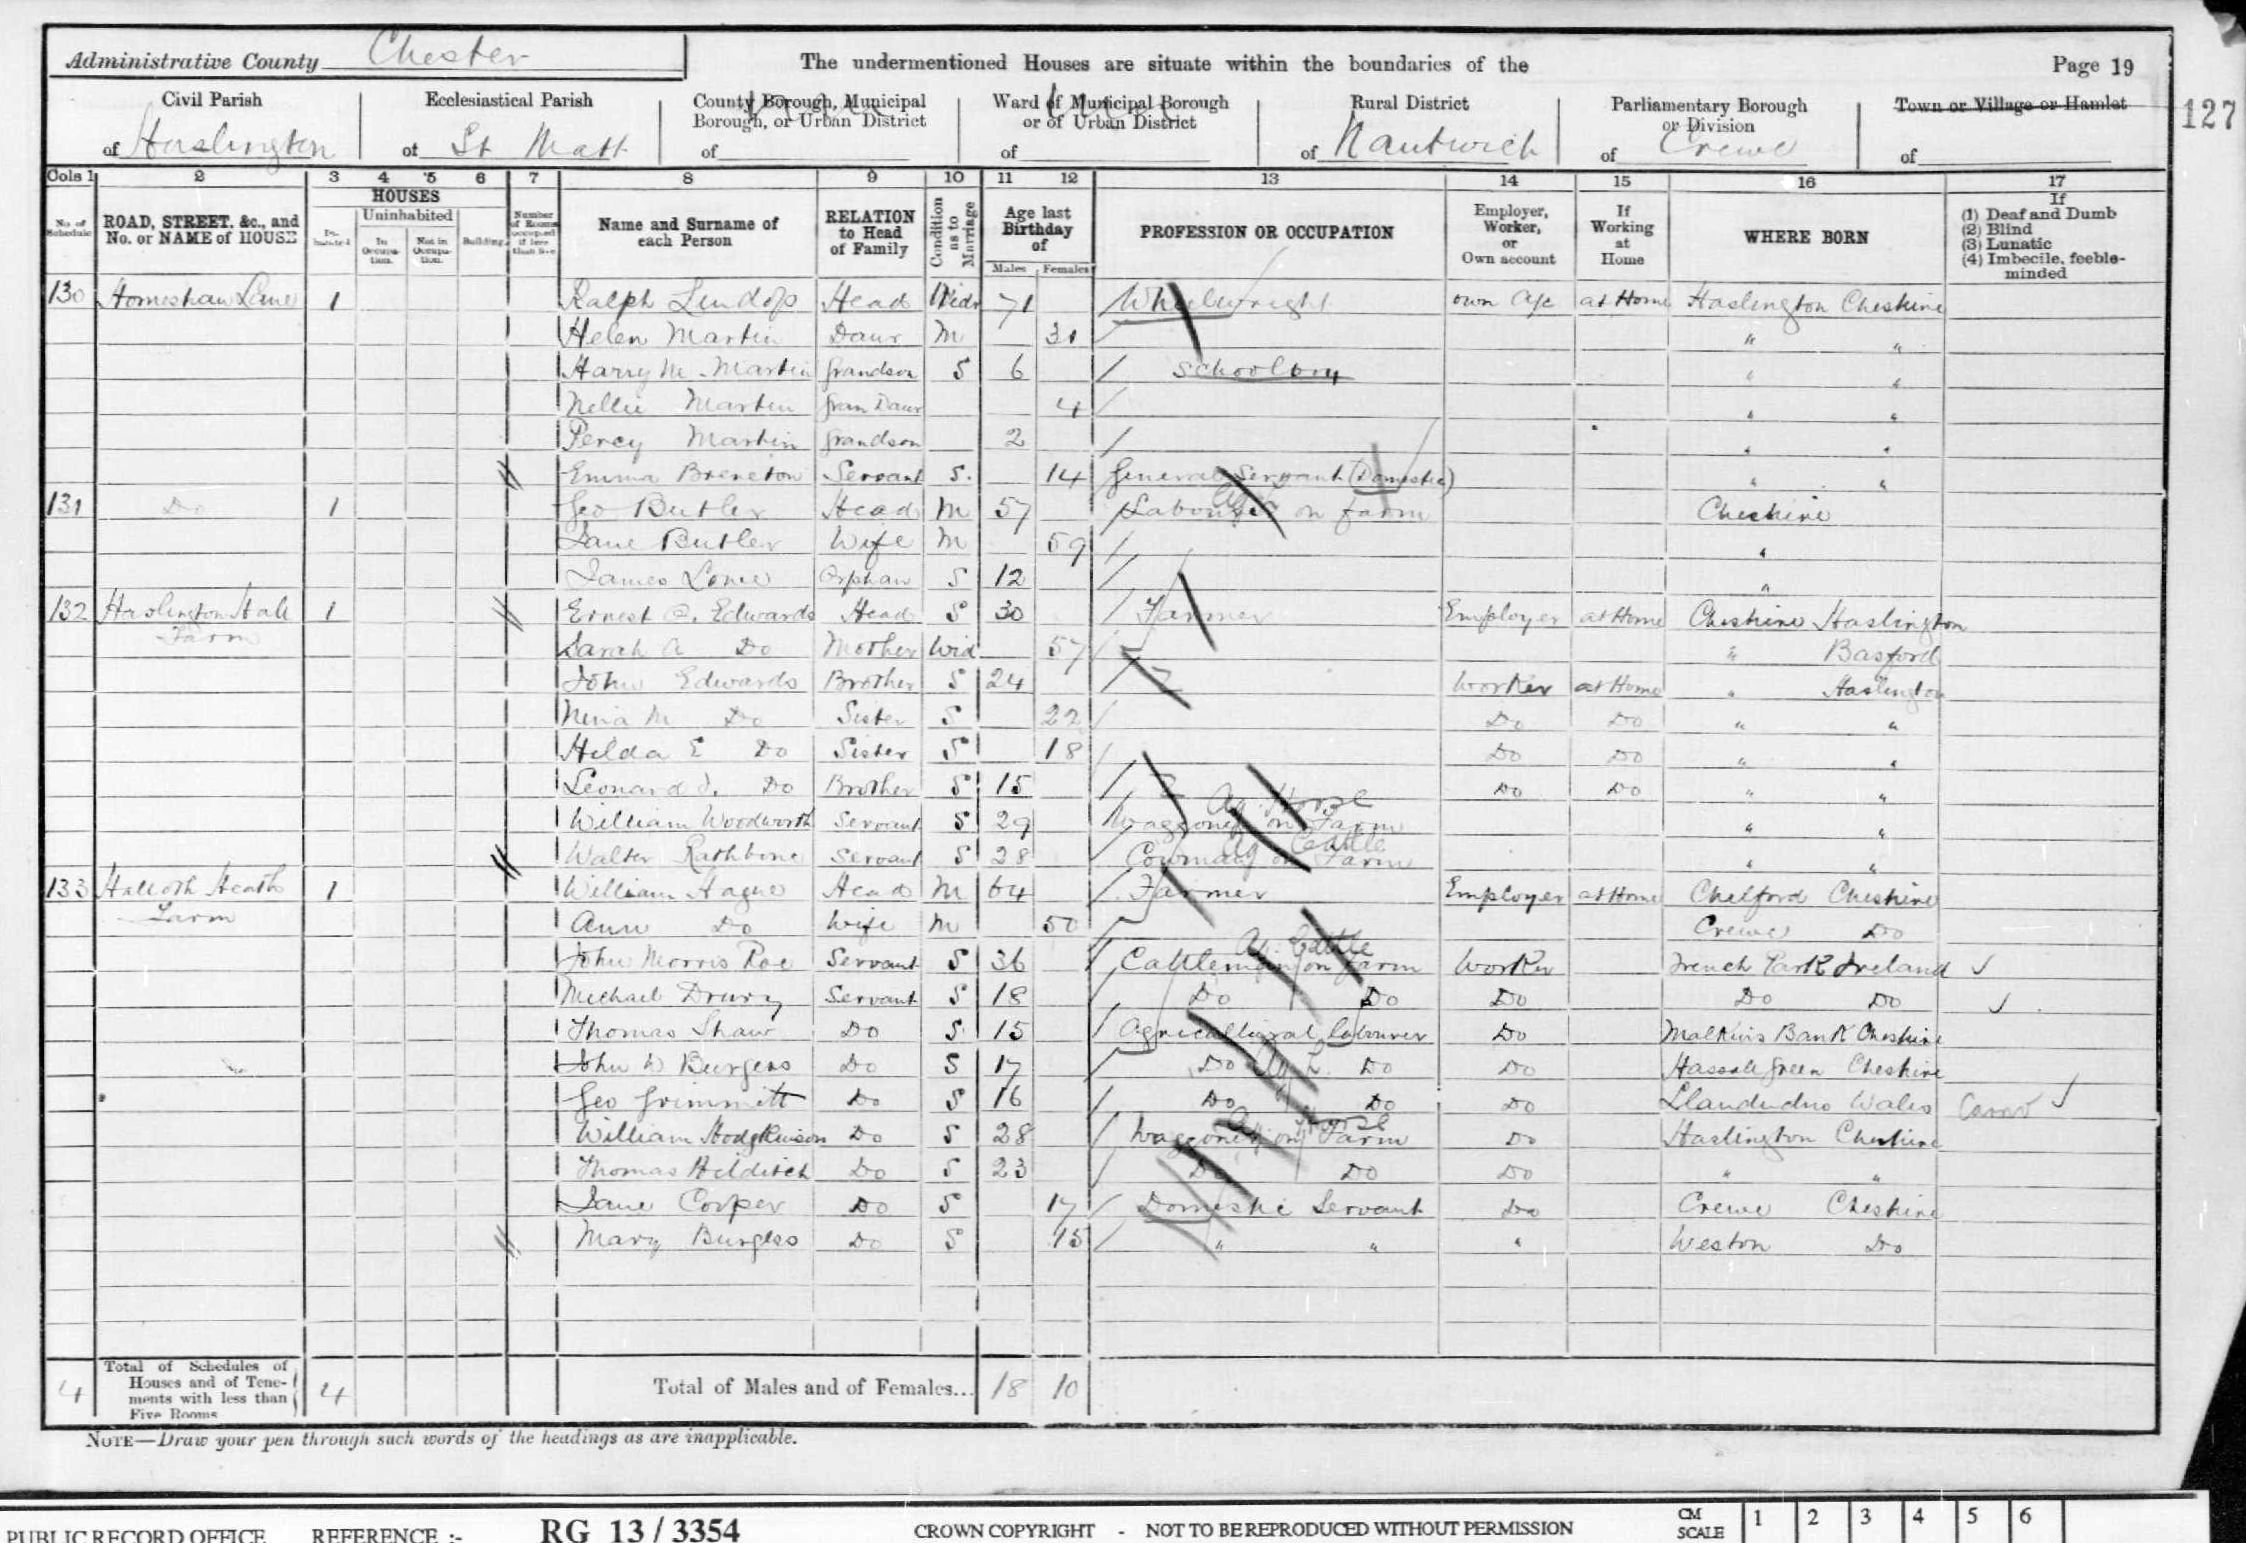 Administrative County Chester
The undermentioned Houses are situate within the boundaries of the
Page 19
Civil Parish of Haslington
Ecclesiastical Parish of St Matt
County Borough, Municipal Borough, or Urban District of
Ward of Municipal Borough or of Urban District of
Rural District of Nantwich
Parliamentary Borough or Division of Crewe
Town or Village or Hamlet of
127
Cols 1 2 3 4 5 6 7 8 9 10 11 12 13 14 15 16 17
No. of Schedule
ROAD, STREET, &c., and No. or NAME of HOUSE
HOUSES
Inhabited
Uninhabited
In Occupation.
Not in Occupation.
Building.
Number of Rooms occupied if less than five
Name and Surname of each Person
RELATION to Head of Family
Condition as to Marriage
Age last Birthday of
Males Females
PROFESSION OR OCCUPATION
Employer, Worker, or Own account
If Working at Home
WHERE BORN
If (1) Deaf and Dumb (2) Blind (3) Lunatic (4) Imbecile, feeble-minded
130 Homeshaw Lane 1 Ralph Lindop Head Widr 71 Wheelwright own a/c at Home Haslington Cheshire
Helen Martin Daur M 31 " "
Harry M Martin Grandson S 6 Schoolboy " "
Nellie Martin Gran Daur 4 " "
Percy Martin Grandson 2 " "
Emma Brereton Servant S. 14 General Servant (Domestic) " "
131 Do 1 Geo Butler Head M 57 Labourer on farm Cheshire
Jane Butler Wife M 59 "
James Orphan S 12 "
132 Haslington Hall Farm 1 Ernest Edwards Head S 30 Farmer Employer at Home Cheshire Haslington
Sarah A Do Mother Wid 57 " Basford
John Edwards Brother S 24 Worker at Home " Haslington
Nina M Do Sister S 22 Do Do " "
Hilda E Do Sister S 18 Do Do " "
Leonard J. Do Brother S 15 Do Do " "
William Woodworth Servant S 29 Waggoner on Farm Ag. Horse " "
Walter Rathbone Servant S 28 Cowman on Farm Ag Cattle " "
133 Heath Farm 1 William Hague Head M 64 Farmer Employer at Home Chelford Cheshire
Ann Do Wife M 50 Crewe Do
John Morris Roe Servant S 36 Cattleman on farm Ag. Cattle Worker French Park Ireland
Michael Drury Servant S 18 Do Do Do Do Do
Thomas Shaw Do S 15 Agricultural labourer Do Malkins Bank Cheshire
John W Burgess Do S 17 Do Ag L. Do Do Hassall Green Cheshire
Geo Grimmitt Do S 16 Do Do Do Llandudno Wales
William Hodgkinson Do S 28 Waggoner on Farm Ag Horse Do Haslington Cheshire
Thomas Hilditch Do S 23 Do Do Do " "
Jane Cooper Do S 17 Domestic Servant Do Crewe Cheshire
Mary Burgess Do S 15 " " " Weston Do
4 Total of Schedules of Houses and of Tenements with less than Five Rooms 4
Total of Males and of Females... 18 10
NOTE—Draw your pen through such words of the headings as are inapplicable.
PUBLIC RECORD OFFICE REFERENCE :- RG 13 / 3354
CROWN COPYRIGHT - NOT TO BE REPRODUCED WITHOUT PERMISSION
CM SCALE 1 2 3 4 5 6